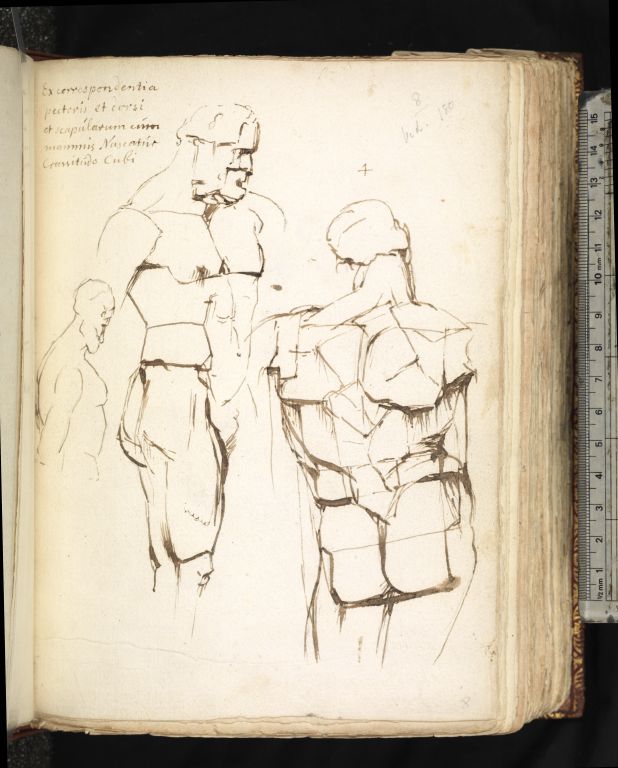 Ex correspondentia
pectoris et dorsi
et scapularum cum
mammis Nascatur
Gravitudo Cubi
8
180
4
15
14
13
12
11
10 mm
9
8
7
6
5
4
3
2
½ mm 1